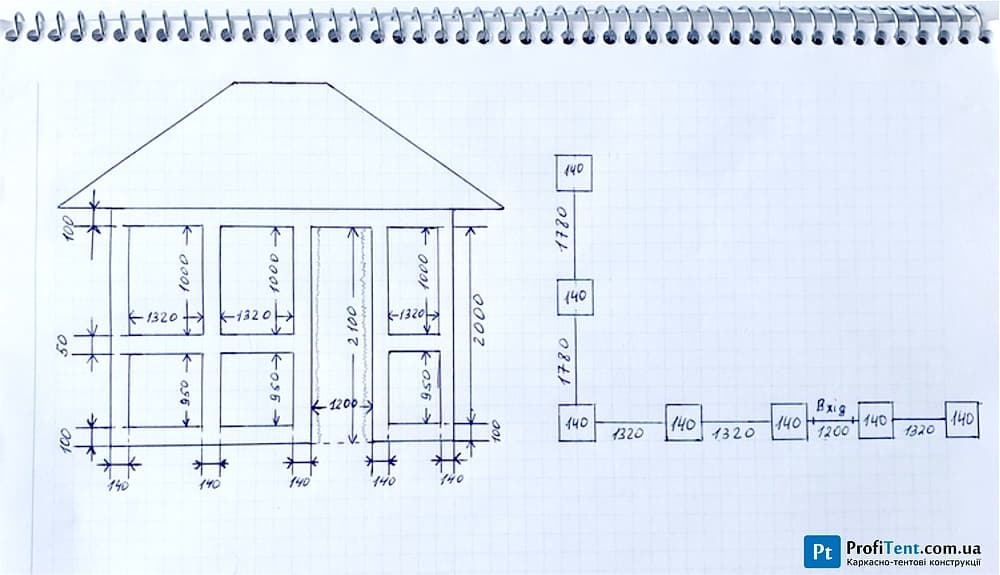 100
1000
1000
1000
1320
1320
1320
50
2100
2000
950
950
950
1200
100
100
140
140
140
140
140
140
1780
140
1780
140
1320
140
1320
140
Вхід
1200
140
1320
140
Pt
ProfiTent.com.ua
Каркасно-тентові конструкції